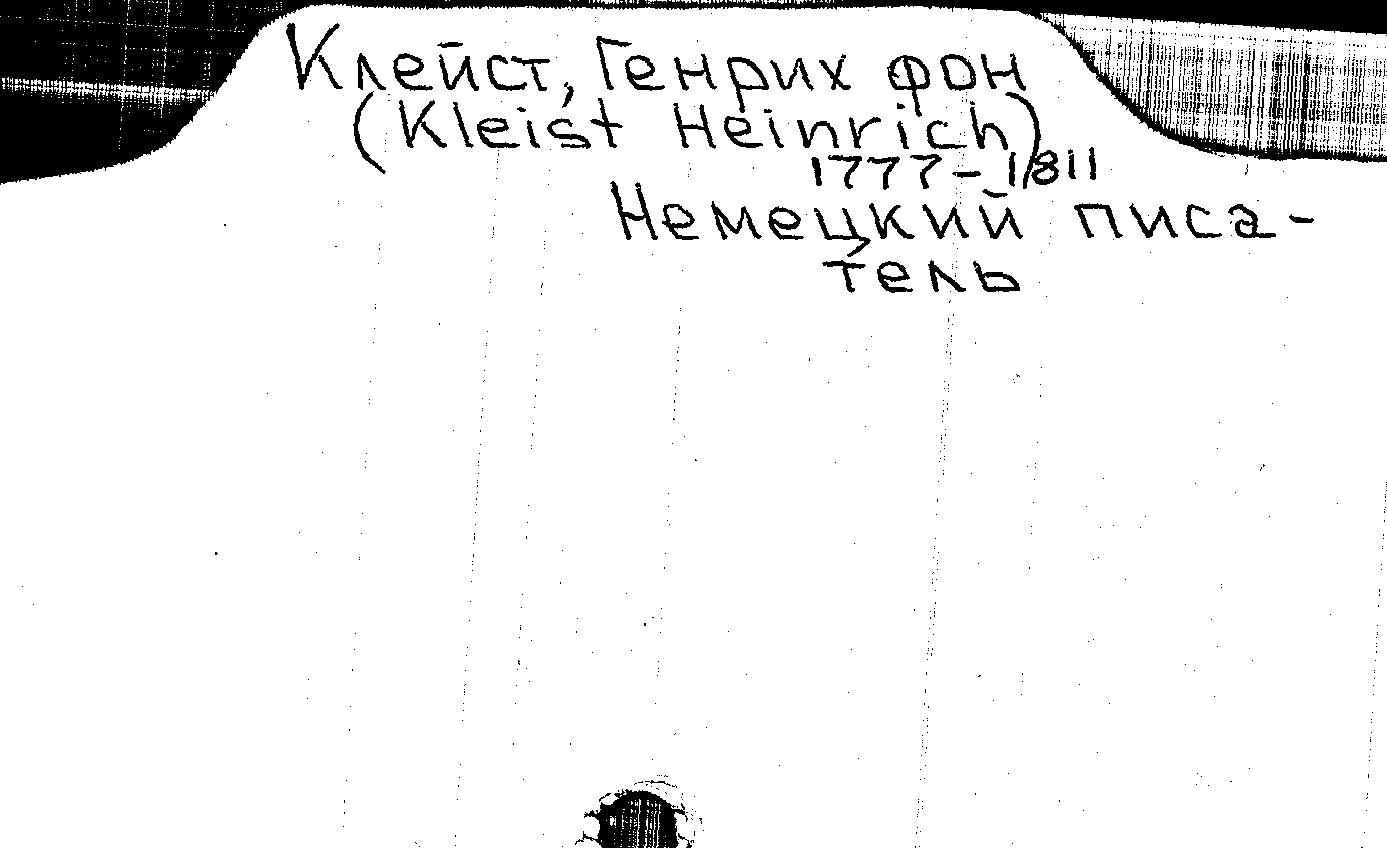 Клейст, Генрих фон
(Kleist Heinrich)
1777-1811
Немецкий писа-
тель